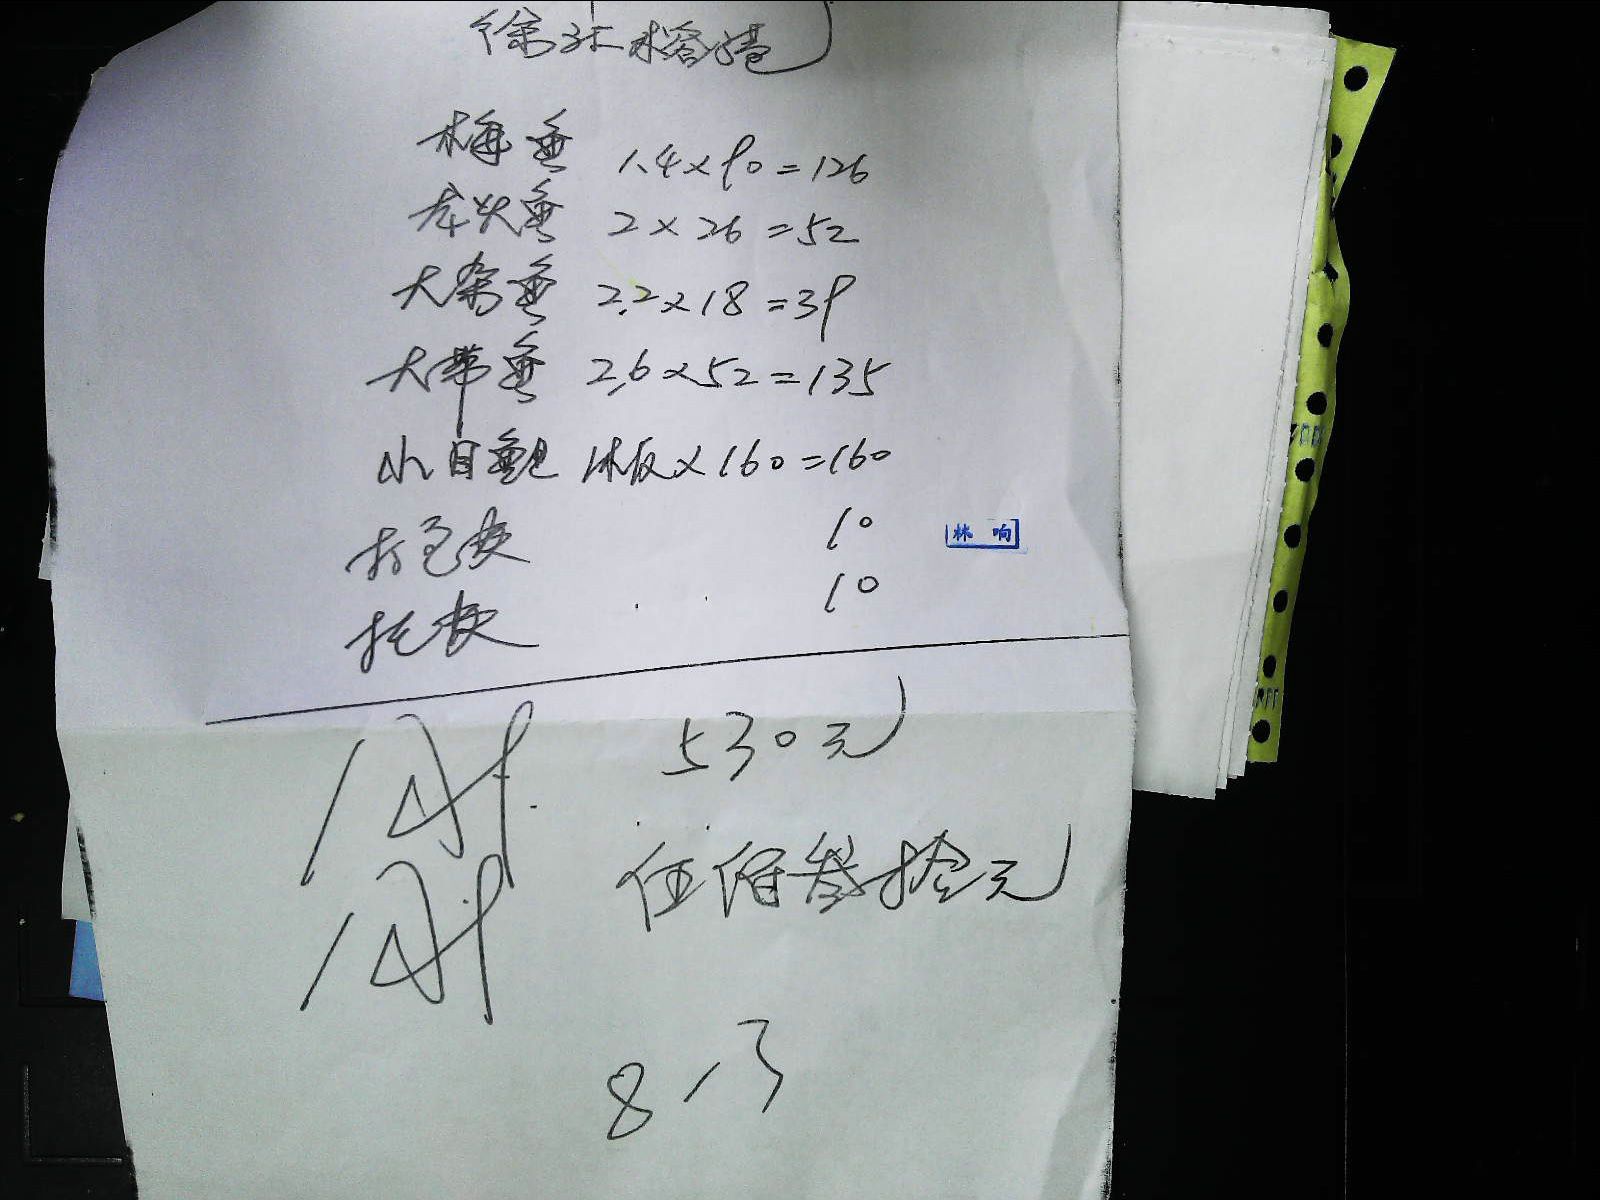 徐江水容港
梅鱼 1.4×90=126
龙头鱼 2×26=52
大条鱼 2.2×18=39
大带鱼 2.6×52=135
小目鱼 1板×160=160
打包费 10
林 响
托费 10
530元
伍佰叁拾元
8/3